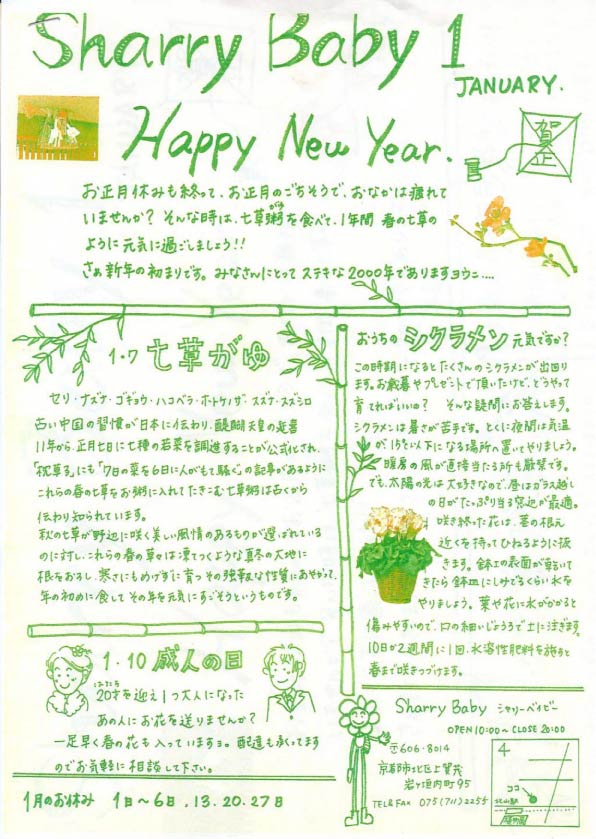 Sharry Baby 1
JANUARY.
賀正
Happy New Year.
お正月休みも終って、お正月のごちそうで、おなかは疲れて
いませんか? そんな時は、七草粥を食べて、1年間 春の七草の
ように元気に過ごしましょう!!
さぁ新年の初まりです。みなさんにとって ステキな2000年でありますヨウニ....
1・7 七草がゆ
セリ・ナズナ・ゴギョウ・ハコベラ・ホトケノザ・スズナ・スズシロ
古い中国の習慣が日本に伝わり、醍醐天皇の延喜
11年から、正月七日に七種の若菜を調進することが公式化され、
「枕草子」にも「7日の菜を6日に人がもて騒ぐ」の記事があるように
これらの春の七草をお粥に入れてたきこむ七草粥は古くから
伝わり知られています。
秋の七草が野辺に咲く美しい風情のあるものが選ばれている
のに対し、これらの春の草々は凍てつくような真冬の大地に
根をおろし、寒さにもめげずに育つその強靱な性質にあやかって、
年の初めに食してその年を元気にすごそうというものです。
1・10 成人の日
はたち
20才を迎え1つ大人になった
あの人にお花を送りませんか?
一足早く春の花も入っていますョ。配達も承ってます
のでお気軽に相談して下さい。
1月のお休み 1日〜6日,13.20.27日
おうちの シクラメン 元気ですか?
この時期になるとたくさんのシクラメンが出回り
ます。お歳暮やプレゼントで頂いたけど、どうやって
育てればいいの? そんな疑問にお答えします。
シクラメンは暑さが苦手です。とくに夜間は気温
が、15℃以下になる場所へ置いてやりましょう。
暖房の風が直接当たる所も厳禁です。
でも、太陽の光は大好きなので、昼はガラス越し
の日がたっぷり当る窓辺が最適。
咲き終った花は、茎の根元
近くを持ってひねるように抜
きます。鉢土の表面が乾いて
きたら鉢皿にしみでるくらい水を
やりましょう。葉や花に水がかかると
傷みやすいので、口の細いじょうろで土に注ぎます。
10日か2週間に1回、水溶性肥料を施すと
春まで咲きつづけます。
Sharry Baby シャリーベイビー
OPEN 10:00〜CLOSE 20:00
〒606-8014
京都市北区上賀茂
岩ヶ垣内町95
TEL&FAX 075(711)2255
4
ココ
北山駅
植物園